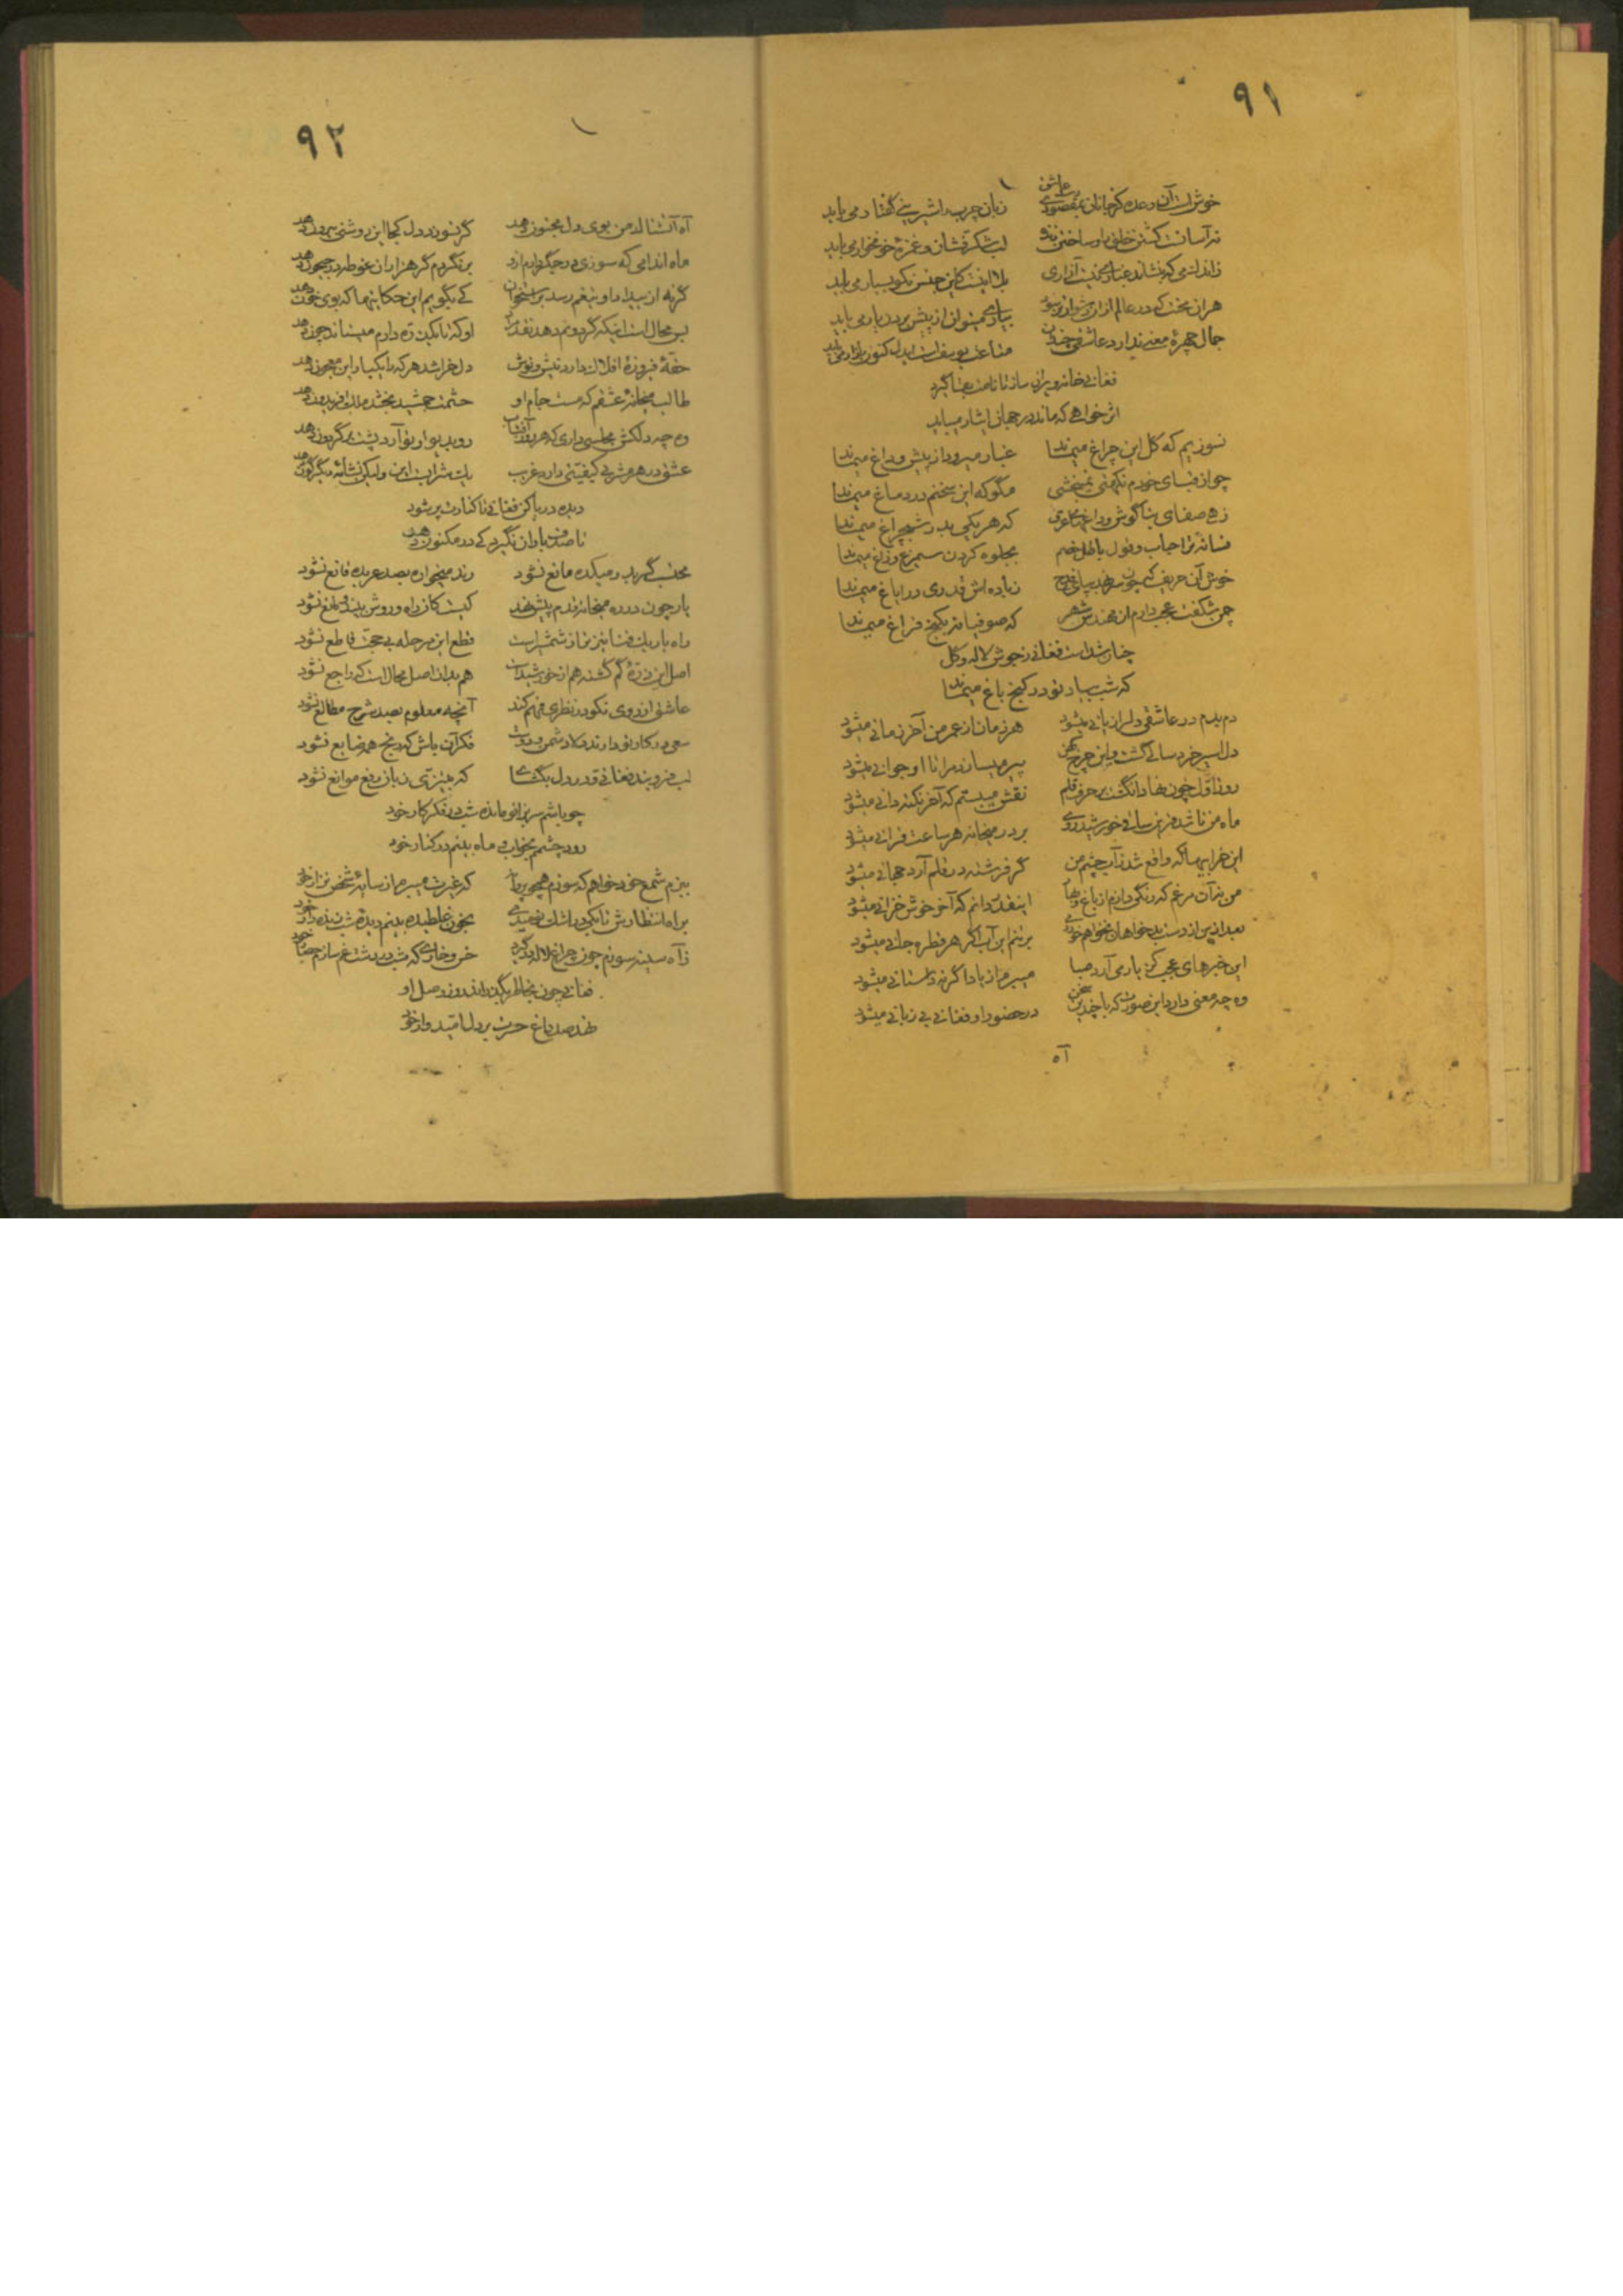 ۹۱
عاشق
خوش است آن وعده کز جانان بمقصودی زبان چرب و شیرینی گفتار می باید
نه آسانست کشتن خلق را و ساختن زنده لب شکرفشان و غمزهٔ خونخوار می باید
بلا اینست کاین جنس نکو بسیار می باید
هران محنت که در عالم از ان دشوارتر نبود بیاد می توان از پیش بردن یار می باید
جمال چهرهٔ معنی ندارد عاشقی چندان متاعت یوسف است ایدل کنون بازار می باید
فغانی خانه ویرانی ساز تا نامت بقا گیرد
اثر خواهی که ماند در جهانی ایثار میباید
نسوزیم که گل این چراغ میماند غبار میرود از پیش و داغ میماند
چو از قبای خودم نکهتی نمیبخشی مگو که این سخنم در دماغ میماند
زهی صفای بناگوش و که هر یکی بدر شبچراغ میماند
بجلوه کردن سیمرغ و زاغ میماند
خوش آن حریف که چون زباده اش قدری در ایاغ میماند
چمن شکفت عجب دارم از شهر که صوفیانه بکنج فراغ میماند
چنان شداست فغانی ز جوش لاله و گل
که شب بیاد تو در کنج باغ میماند
دم بدم در عاشقی دل را زیانی میشود هر زمان از عمر من آخر زمانی میشود
دل اسیر خردسالی گشت و این چرخ کهن پیر میسازد مرا تا او جوانی میشود
روز اول چون نهاد انگشت بر حرف قلم نقش میبستم که آخر نکته دانی میشود
ماه من تا شد خورشید روی بر در میخانه هر ساعت قرانی میشود
این خرابیها که واقع شد ز آب چشم من گر فرشته در قلم آرد جهانی میشود
من نه آن مرغم که رنگی دارم از باغ و بهار اینقدر دانم که آخر خوش خزانی میشود
بعد ازین از دست بدخواهان نخواهم خورد می بر تنم این آب اگر هر قطره جانی میشود
این خبرهای عجب کز یار می آرد صبا میبرم از یاد اگر نه داستانی میشود
وه چه معنی دارد این صورت که با چندین سخن در حضور او فغانی بی زبانی میشود
آه
۹۲
آه آتشناک من بوی دل مجنون دهد گر نسوزد دل کجا این روشنی بیرون دهد
ماه اندامی که سوزی در جگر دارم ازو بر نگردم گر هزاران غوطه در جیحون دهد
گرنه از بیداد او تیغم رسد بر استخوان کی بگویم این حکایتها که بوی خون دهد
بس محال است اینکه گردونم دهد نقد مراد او که تا یک ذره دارم میستاند چون دهد
حقهٔ فیروزهٔ افلاک دارد نیش و نوش دل خراشد هر که را یکبار این معجون دهد
طالب میخانهٔ عشقم که مست جام او حشمت جمشید بخشد ملک افریدون دهد
وه چه دلکش مجلسی داری که هر روز آفتاب رو بدیوار تو آرد پشت بر گردون دهد
عشق در هر مشربی کیفیتی دارد غریب یک شرابست این ولیکن نشأه دیگرگون دهد
دیده دریا کن فغانی تا کنارت پر شود
تا صدف باران نگیرد کی در مکنون دهد
محتسب گر بدر میکده مانع نشود رند میخواره بصد عربده قانع نشود
یار چون در ره میخانه قدم پیش نهد کیست کان راه و روش بیند و مانع نشود
راه باریک فنا تیزتر از شمشیر است قطع این مرحله بی حجت قاطع نشود
اصل این ذرهٔ گم گشته هم از خورشید است هم بدان اصل محال است که راجع نشود
عاشق از روی نکو در نظری فهم کند آنچه معلوم بصد شرح مطالع نشود
سعی در کار تو دارند دلا دشمن و دوست فکر آن باش که رنج همه ضایع نشود
لب فرو بند فغانی و در دل بگشای که به تیزی زبان رفع موانع نشود
چو باشم سر بزانو مانده شب در فکر کار خود
رود چشمم بخواب و ماه بینم در کنار خود
ببزم شمع خود خواهم که سوزم همچو پروانه که غیرت میبرم از سایهٔ شخص نزار خود
براه انتظارش تا یکی در اشک نومیدی بخون غلطیده بینم دیدهٔ شب زنده دار خود
ز آه سینه سوزم چون چراغ لاله در گیرد خس و خاری که شب در دشت غم سازم حصار خود
فغانی چون بخاطر بگذراند روز وصل او
نهد صد داغ حسرت بر دل امیدوار خود